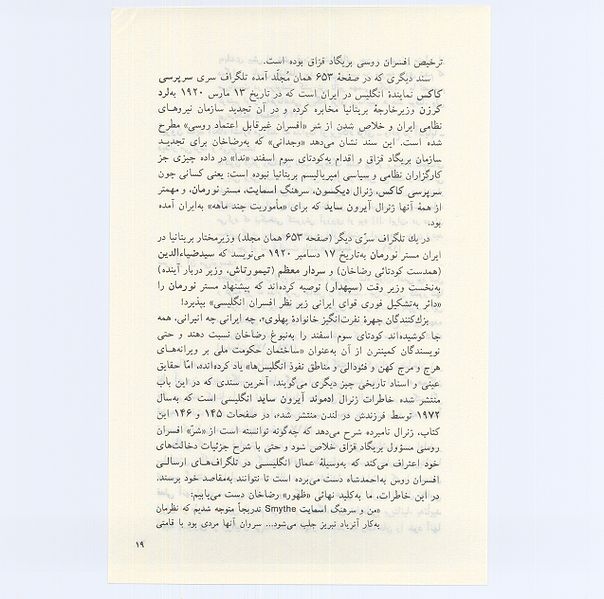 ترخیص افسران روسی بریگاد قزاق بوده است.
سند دیگری که در صفحهٔ ۶۵۳ همان مُجلّد آمده تلگراف سری سرپرسی
کاکس نمایندهٔ انگلیس در ایران است که در تاریخ ۱۳ مارس ۱۹۲۰ به‌لرد
کرزن وزیرخارجهٔ بریتانیا مخابره کرده و در آن تجدید سازمان نیروهای
نظامی ایران و خلاص شدن از شر «افسران غیرقابل اعتماد روسی» مطرح
شده است. این سند نشان می‌دهد «وجدانی» که به‌رضاخان برای تجدید
سازمان بریگاد قزاق و اقدام به‌کودتای سوم اسفند «ندا» در داده چیزی جز
کارگزاران نظامی و سیاسی امپریالیسم بریتانیا نبوده است: یعنی کسانی چون
سرپرسی کاکس، ژنرال دیکسون، سرهنگ اسمایت، مستر نورمان، و مهمتر
از همهٔ آنها ژنرال آیرون ساید که برای «مأموریت چند ماهه» به‌ایران آمده
بود.
در یك تلگراف سرّی دیگر (صفحه ۶۵۳ همان مجلد) وزیرمختار بریتانیا در
ایران مستر نورمان به‌تاریخ ۱۷ دسامبر ۱۹۲۰ می‌نویسد که سیدضیاءالدین
(همدست کودتائی رضاخان) و سردار معظم (تیمورتاش، وزیر دربار آینده)
به‌نخست وزیر وقت (سپهدار) توصیه کرده‌اند که پیشنهاد مستر نورمان را
«دائر به‌تشکیل فوری قوای ایرانی زیر نظر افسران انگلیسی» بپذیرد!
بزك‌کنندگان چهرهٔ نفرت‌انگیز خانوادهٔ پهلوی، چه ایرانی چه انیرانی، همه
جا کوشیده‌اند کودتای سوم اسفند را به‌نبوغ رضاخان نسبت دهند و حتی
نویسندگان کمینترن از آن به‌عنوان «ساختمان حکومت ملی بر ویرانه‌های
هرج و مرج کهن و فئودالی و مناطق نفوذ انگلیس‌ها» یاد کرده‌اند، امّا حقایق
عینی و اسناد تاریخی چیز دیگری می‌گویند. آخرین سندی که در این باب
منتشر شده خاطرات ژنرال ادموند آیرون ساید انگلیسی است که به‌سال
۱۹۷۲ توسط فرزندش در لندن منتشر شده، در صفحات ۱۴۵ و ۱۴۶ این
کتاب، ژنرال نامبرده شرح می‌دهد که چه‌گونه توانسته است از «شرّ» افسران
روسی مسؤول بریگاد قزاق خلاص شود و حتی با شرح جزئیات دخالت‌های
خود اعتراف می‌کند که به‌وسیلهٔ عمال انگلیسی در تلگراف‌های ارسالی
افسران روس به‌احمدشاه دست می‌برده است تا نتوانند به‌مقاصد خود برسند.
در این خاطرات، ما به‌کلید نهائی «ظهور» رضاخان دست می‌یابیم:
«من و سرهنگ اسمایت Smythe تدریجاً متوجه شدیم که نظرمان
به‌کار آتریاد تبریز جلب می‌شود... سروان آنها مردی بود با قامتی
۱۹